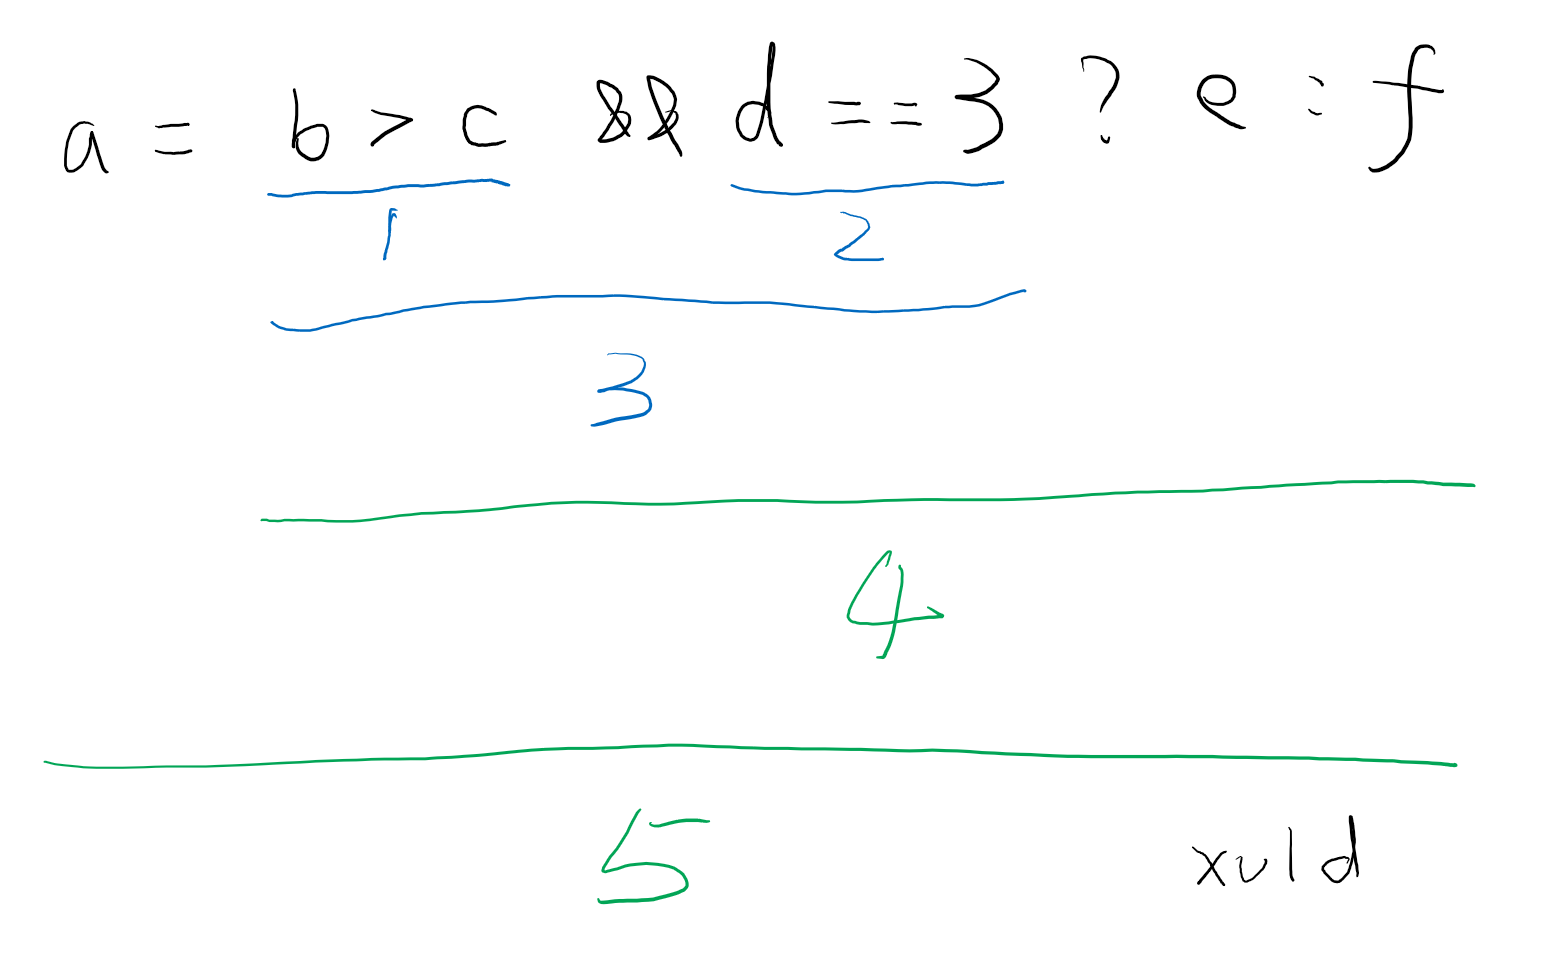 a = b > c && d == 3 ? e : f
1 2
3
4
5
xuld